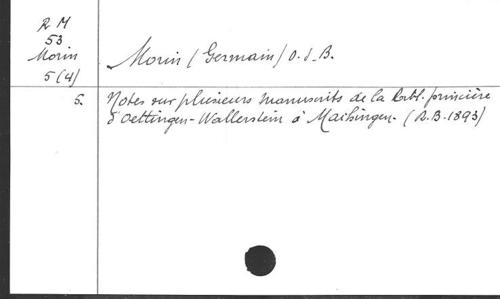 R M
53
Morin
5 (4)
Morin (Germain) O.S.B.
5. Notes sur plusieurs manuscrits de la Bibl. princière
d'Oettingen-Wallerstein à Maihingen. (R.B. 1893)